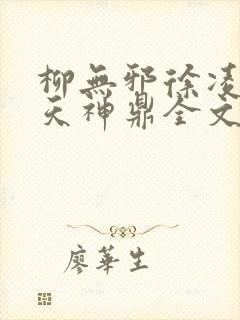 柳無邪徐凌
天神鼎全文
廖華生